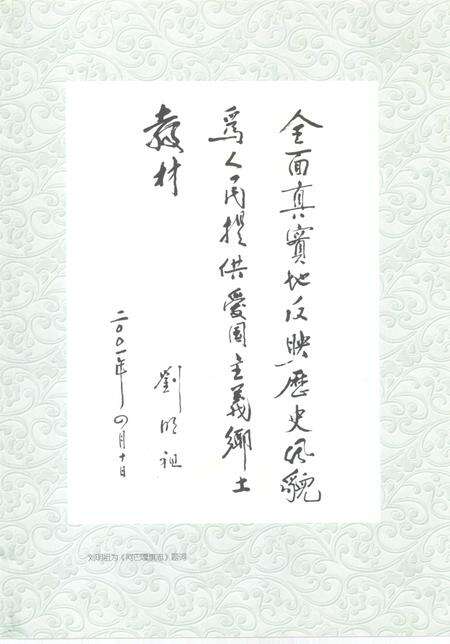 全面真實地反映歷史風貌
爲人民提供愛国主義鄉土
教材
劉明祖
二〇〇一年四月十日
刘明祖为《阿巴嘎旗志》题词